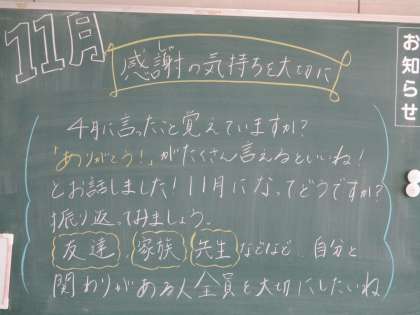 11月
感謝の気持ちを大切に
かんしゃ
お知らせ
4月に言ったこと覚えていますか?
「ありがとう!」がたくさん言えるといいね!
とお話しました!11月になってどうですか?
振り返ってみましょう。
友達、家族、先生などなど、自分と
関わりがある人全員を大切にしたいね